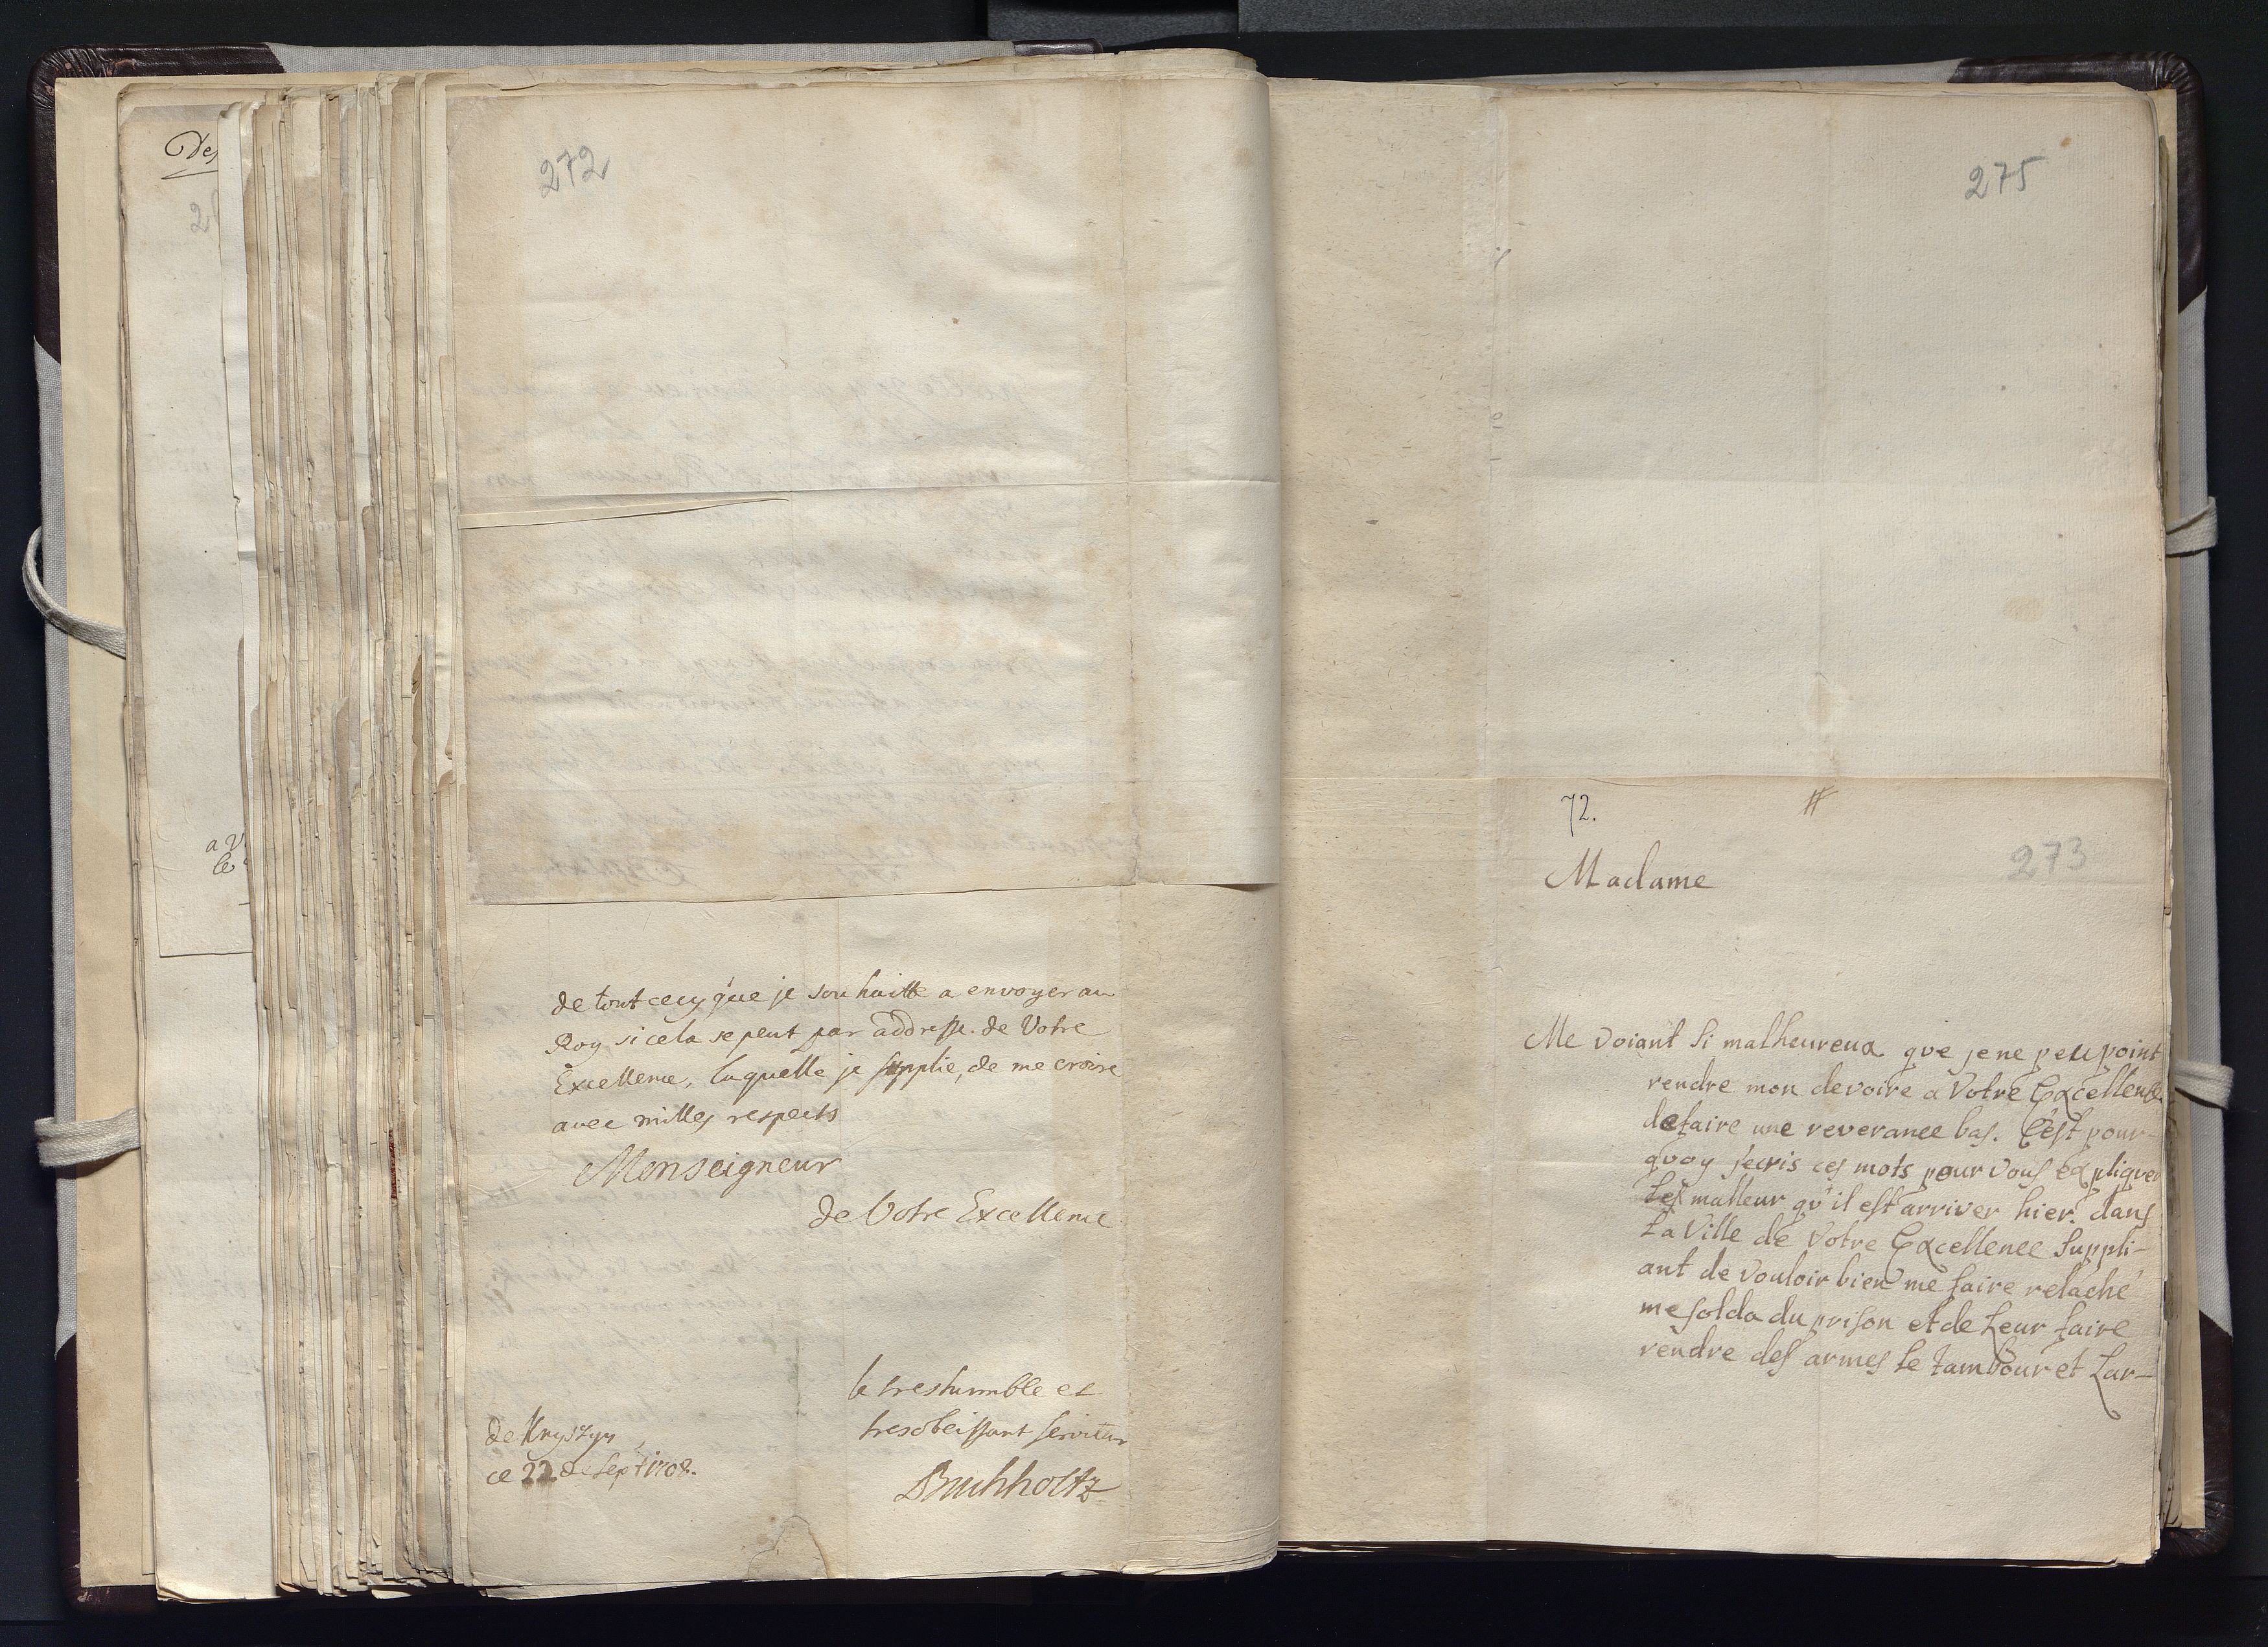 272
de tout cecy que je souhaitte a envoyer au
Roy si cela se peut par addresse de Votre
Excellence, laquelle je supplie, de me croire
avec milles respects
Monseigneur
de Votre Excellence
le treshumble et
tresobeissant serviteur
Buchholtz
de Knyszyn
ce 22 de Sept 1708.
275
72.
273
Madame
Me voiant si malheureux que je ne peu point
rendre mon devoire a Votre Excellence
de faire une reverance bas. C'est pour-
quoy jecris ces mots pour vous expliquer
les malleur qu'il est arriver hier dans
La Ville de Votre Excellence Suppli-
ant de vouloir bien me faire relaché
me solda du prison et de Leur faire
rendre des armes le tambour et Lar-
Des